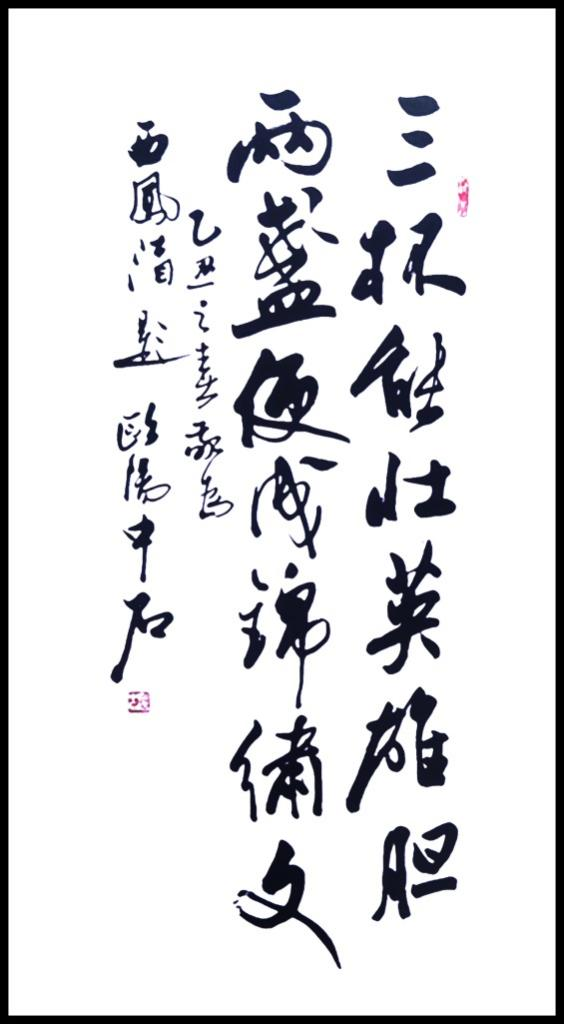 三杯能壮英雄胆
两盏便成锦绣文
乙丑之春敬为
西凤酒题 欧阳中石